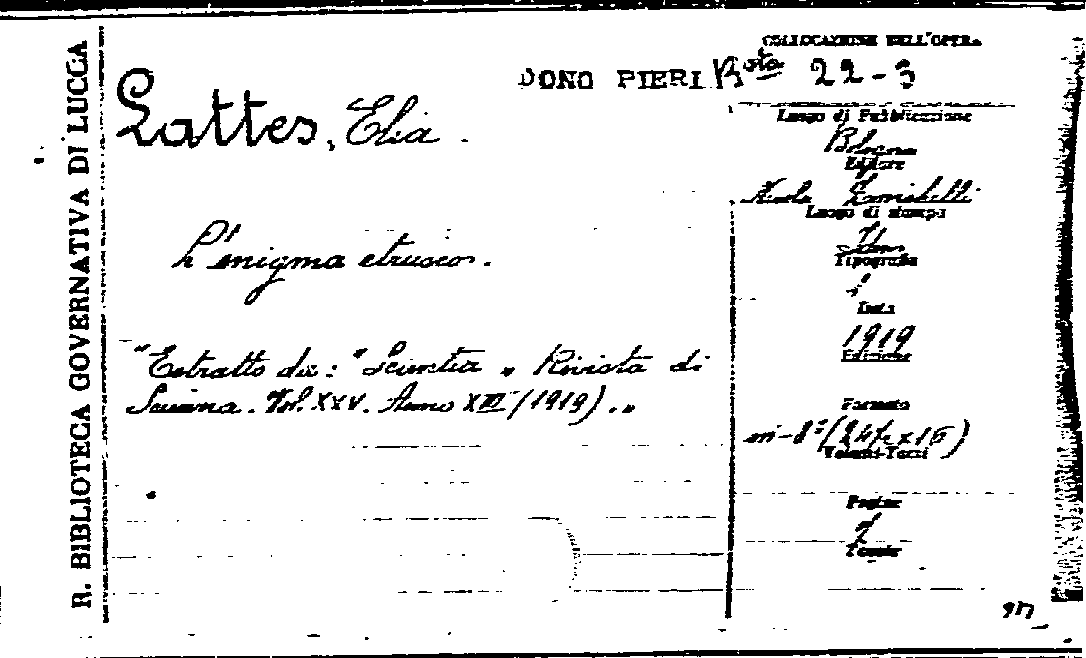 R. BIBLIOTECA GOVERNATIVA DI LUCCA
COLLOCAZIONE DELL'OPERA
DONO PIERI Bsta 22-3
Lattes, Elia.
L'enigma etrusco.
"Estratto da: "Scientia" Rivista di
Scienza. Vol. XXV. Anno XIII (1919)."
Luogo di Pubblicazione
Bologna
Editore
Nicola Zanichelli
Luogo di stampa
Tipografia
Data
1919
Edizione
Formato
in-8°(24½x16)
Volumi-Tomi
Pagine
Tavole